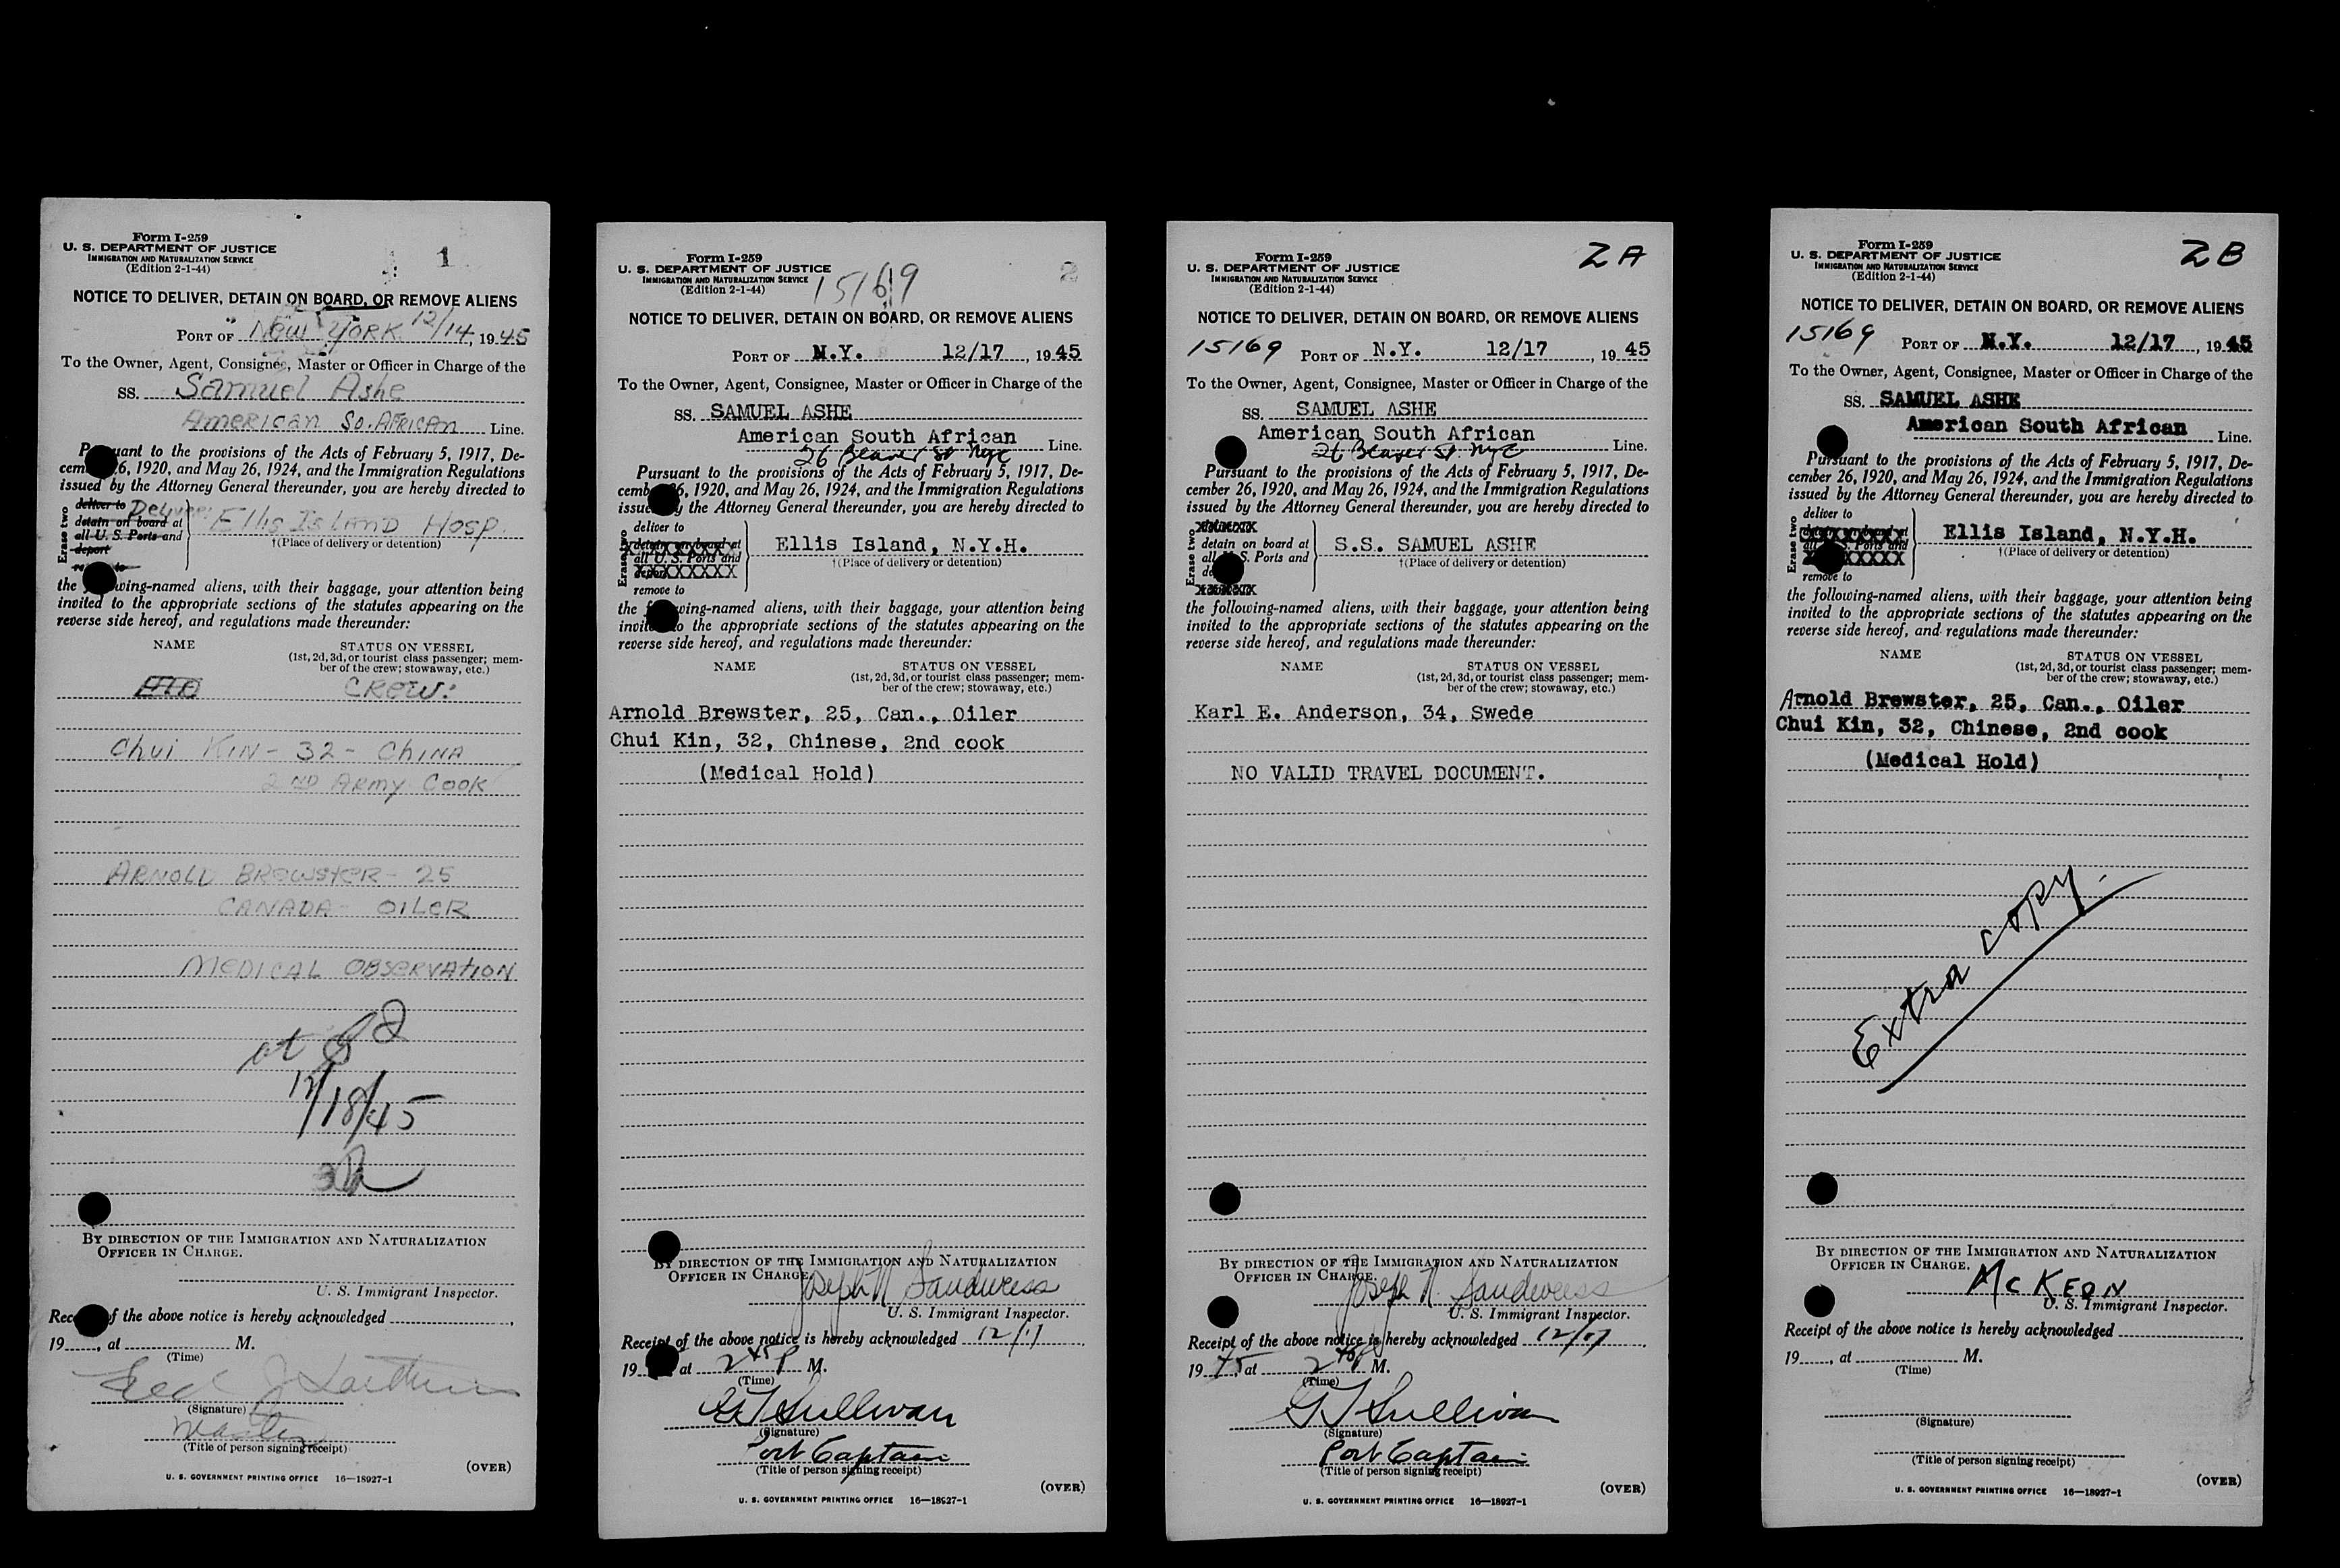 Form I-259
U. S. DEPARTMENT OF JUSTICE
IMMIGRATION AND NATURALIZATION SERVICE
(Edition 2-1-44)
1
NOTICE TO DELIVER, DETAIN ON BOARD, OR REMOVE ALIENS
PORT OF New York 12/14, 1945
To the Owner, Agent, Consignee, Master or Officer in Charge of the
SS. Samuel Ashe
American So. African Line.
Pursuant to the provisions of the Acts of February 5, 1917, De-
cember 26, 1920, and May 26, 1924, and the Immigration Regulations
issued by the Attorney General thereunder, you are hereby directed to
Erase two
deliver to Deliver
detain on board at
all U. S. Ports and
deport
remove to
Ellis Island Hosp.
†(Place of delivery or detention)
the following-named aliens, with their baggage, your attention being
invited to the appropriate sections of the statutes appearing on the
reverse side hereof, and regulations made thereunder:
NAME STATUS ON VESSEL
(1st, 2d, 3d, or tourist class passenger; mem-
ber of the crew; stowaway, etc.)
CREW:
Chui Kin - 32 - China
2ND Army Cook
Arnold Brewster - 25
Canada - Oiler
Medical Observation
at
12/18/45
BY DIRECTION OF THE IMMIGRATION AND NATURALIZATION
OFFICER IN CHARGE.
U. S. Immigrant Inspector.
Receipt of the above notice is hereby acknowledged
19, at M.
(Time)
(Signature)
Master
(Title of person signing receipt)
(OVER)
U. S. GOVERNMENT PRINTING OFFICE 16—18927-1
Form I-259
U. S. DEPARTMENT OF JUSTICE
IMMIGRATION AND NATURALIZATION SERVICE
(Edition 2-1-44)
15169
2
NOTICE TO DELIVER, DETAIN ON BOARD, OR REMOVE ALIENS
PORT OF N.Y. 12/17, 1945
To the Owner, Agent, Consignee, Master or Officer in Charge of the
SS. SAMUEL ASHE
American South African Line.
26 Beaver St NYC
Pursuant to the provisions of the Acts of February 5, 1917, De-
cember 26, 1920, and May 26, 1924, and the Immigration Regulations
issued by the Attorney General thereunder, you are hereby directed to
Erase two
deliver to
detain on board at
all U. S. Ports and
deport
remove to
Ellis Island, N.Y.H.
†(Place of delivery or detention)
the following-named aliens, with their baggage, your attention being
invited to the appropriate sections of the statutes appearing on the
reverse side hereof, and regulations made thereunder:
NAME STATUS ON VESSEL
(1st, 2d, 3d, or tourist class passenger; mem-
ber of the crew; stowaway, etc.)
Arnold Brewster, 25, Can., Oiler
Chui Kin, 32, Chinese, 2nd cook
(Medical Hold)
BY DIRECTION OF THE IMMIGRATION AND NATURALIZATION
OFFICER IN CHARGE.
Joseph N Sandweiss
U. S. Immigrant Inspector.
Receipt of the above notice is hereby acknowledged 12/17
19 at 2 45 P M.
(Time)
GT Sullivan
(Signature)
Port Captain
(Title of person signing receipt)
(OVER)
U. S. GOVERNMENT PRINTING OFFICE 16—18927-1
Form I-259
U. S. DEPARTMENT OF JUSTICE
IMMIGRATION AND NATURALIZATION SERVICE
(Edition 2-1-44)
2A
NOTICE TO DELIVER, DETAIN ON BOARD, OR REMOVE ALIENS
15169 PORT OF N.Y. 12/17, 1945
To the Owner, Agent, Consignee, Master or Officer in Charge of the
SS. SAMUEL ASHE
American South African Line.
26 Beaver St. NYC
Pursuant to the provisions of the Acts of February 5, 1917, De-
cember 26, 1920, and May 26, 1924, and the Immigration Regulations
issued by the Attorney General thereunder, you are hereby directed to
Erase two
detain on board at
all U. S. Ports and
deport
S.S. SAMUEL ASHE
†(Place of delivery or detention)
the following-named aliens, with their baggage, your attention being
invited to the appropriate sections of the statutes appearing on the
reverse side hereof, and regulations made thereunder:
NAME STATUS ON VESSEL
(1st, 2d, 3d, or tourist class passenger; mem-
ber of the crew; stowaway, etc.)
Karl E. Anderson, 34, Swede
NO VALID TRAVEL DOCUMENT.
BY DIRECTION OF THE IMMIGRATION AND NATURALIZATION
OFFICER IN CHARGE.
Joseph N. Sandweiss
U. S. Immigrant Inspector.
Receipt of the above notice is hereby acknowledged 12/17
1945, at 2 45 P M.
(Time)
GT Sullivan
(Signature)
Port Captain
(Title of person signing receipt)
(OVER)
U. S. GOVERNMENT PRINTING OFFICE 16—18927-1
Form I-259
U. S. DEPARTMENT OF JUSTICE
IMMIGRATION AND NATURALIZATION SERVICE
(Edition 2-1-44)
2B
NOTICE TO DELIVER, DETAIN ON BOARD, OR REMOVE ALIENS
15169 PORT OF N.Y. 12/17, 1945
To the Owner, Agent, Consignee, Master or Officer in Charge of the
SS. SAMUEL ASHE
American South African Line.
Pursuant to the provisions of the Acts of February 5, 1917, De-
cember 26, 1920, and May 26, 1924, and the Immigration Regulations
issued by the Attorney General thereunder, you are hereby directed to
Erase two
deliver to
detain on board at
all U. S. Ports and
remove to
Ellis Island, N.Y.H.
†(Place of delivery or detention)
the following-named aliens, with their baggage, your attention being
invited to the appropriate sections of the statutes appearing on the
reverse side hereof, and regulations made thereunder:
NAME STATUS ON VESSEL
(1st, 2d, 3d, or tourist class passenger; mem-
ber of the crew; stowaway, etc.)
Arnold Brewster, 25, Can., Oiler
Chui Kin, 32, Chinese, 2nd cook
(Medical Hold)
Extra copy.
BY DIRECTION OF THE IMMIGRATION AND NATURALIZATION
OFFICER IN CHARGE.
McKeon
U. S. Immigrant Inspector.
Receipt of the above notice is hereby acknowledged
19, at M.
(Time)
(Signature)
(Title of person signing receipt)
(OVER)
U. S. GOVERNMENT PRINTING OFFICE 16—18927-1